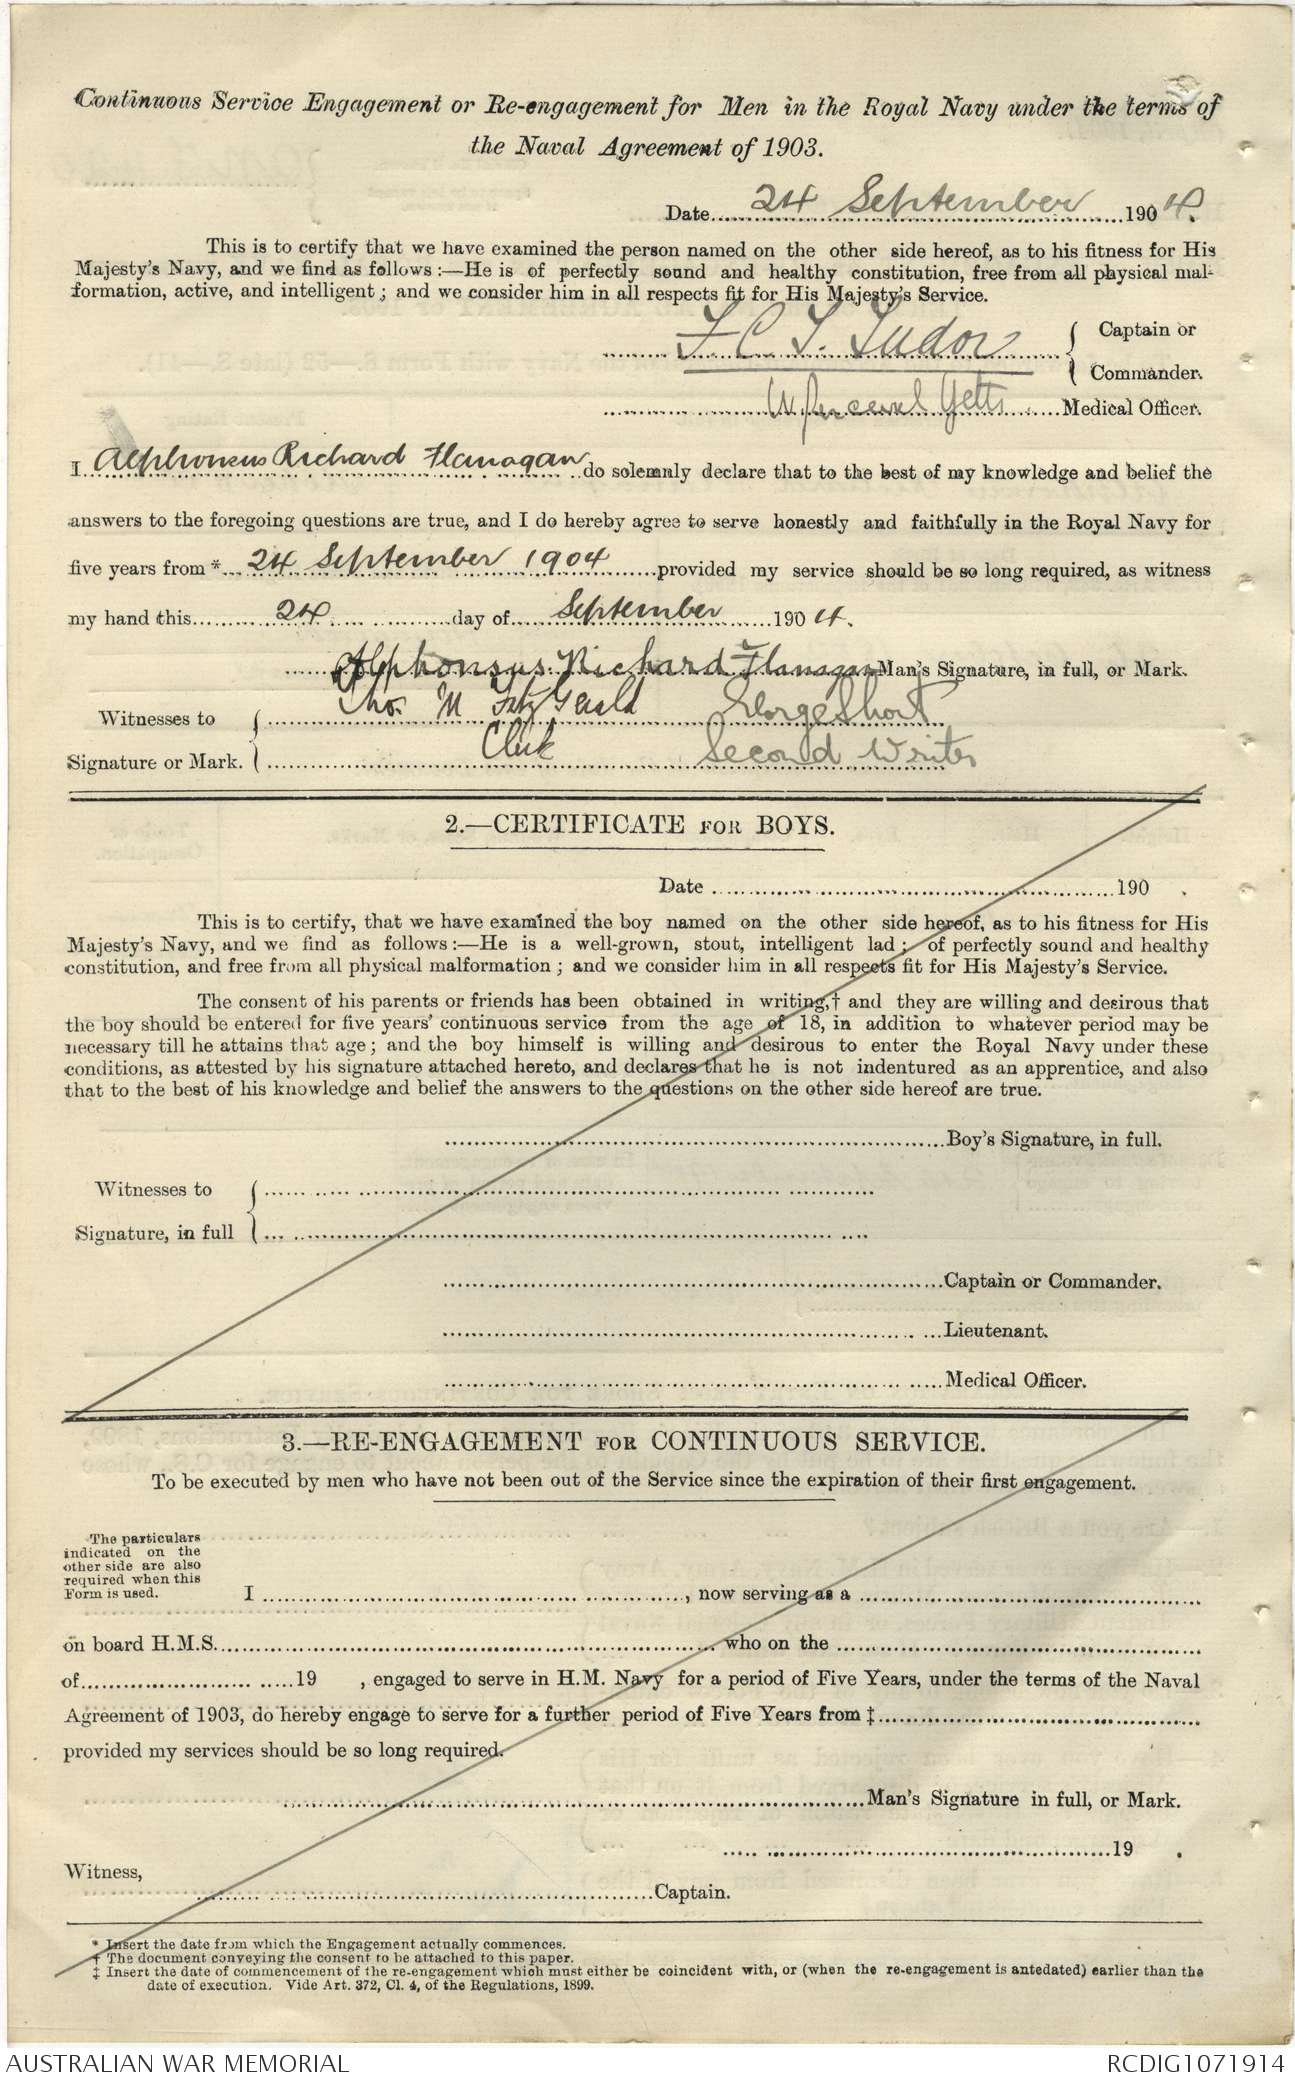 Continuous Service Engagement or Re-engagement for Men in the Royal Navy under the terms of
the Naval Agreement of 1903.
Date 24 September 1904.
This is to certify that we have examined the person named on the other side hereof, as to his fitness for His
Majesty's Navy, and we find as follows :—He is of perfectly sound and healthy constitution, free from all physical mal-
formation, active, and intelligent ; and we consider him in all respects fit for His Majesty's Service.
F C T. Tudor { Captain or
Commander.
W Perceval Yetts Medical Officer.
I Alphonsus Richard Flanagan do solemnly declare that to the best of my knowledge and belief the
answers to the foregoing questions are true, and I do hereby agree to serve honestly and faithfully in the Royal Navy for
five years from * 24 September 1904 provided my service should be so long required, as witness
my hand this 24 day of September 1904.
Alphonsus Richard Flanagan Man's Signature, in full, or Mark.
Witnesses to { Tho. M FitzGerald George Short
Signature or Mark. Clerk Second Writer
2.—CERTIFICATE FOR BOYS.
Date 190 .
This is to certify, that we have examined the boy named on the other side hereof, as to his fitness for His
Majesty's Navy, and we find as follows :—He is a well-grown, stout, intelligent lad ; of perfectly sound and healthy
constitution, and free from all physical malformation ; and we consider him in all respects fit for His Majesty's Service.
The consent of his parents or friends has been obtained in writing,† and they are willing and desirous that
the boy should be entered for five years' continuous service from the age of 18, in addition to whatever period may be
necessary till he attains that age ; and the boy himself is willing and desirous to enter the Royal Navy under these
conditions, as attested by his signature attached hereto, and declares that he is not indentured as an apprentice, and also
that to the best of his knowledge and belief the answers to the questions on the other side hereof are true.
Boy's Signature, in full.
Witnesses to {
Signature, in full
Captain or Commander.
Lieutenant.
Medical Officer.
3.—RE-ENGAGEMENT FOR CONTINUOUS SERVICE.
To be executed by men who have not been out of the Service since the expiration of their first engagement.
The particulars
indicated on the
other side are also
required when this
Form is used.
I , now serving as a
on board H.M.S. who on the
of 19 , engaged to serve in H.M. Navy for a period of Five Years, under the terms of the Naval
Agreement of 1903, do hereby engage to serve for a further period of Five Years from ‡
provided my services should be so long required.
Man's Signature in full, or Mark.
19 .
Witness,
Captain.
* Insert the date from which the Engagement actually commences.
† The document conveying the consent to be attached to this paper.
‡ Insert the date of commencement of the re-engagement which must either be coincident with, or (when the re-engagement is antedated) earlier than the
date of execution. Vide Art. 372, Cl. 4, of the Regulations, 1899.
AUSTRALIAN WAR MEMORIAL
RCDIG1071914